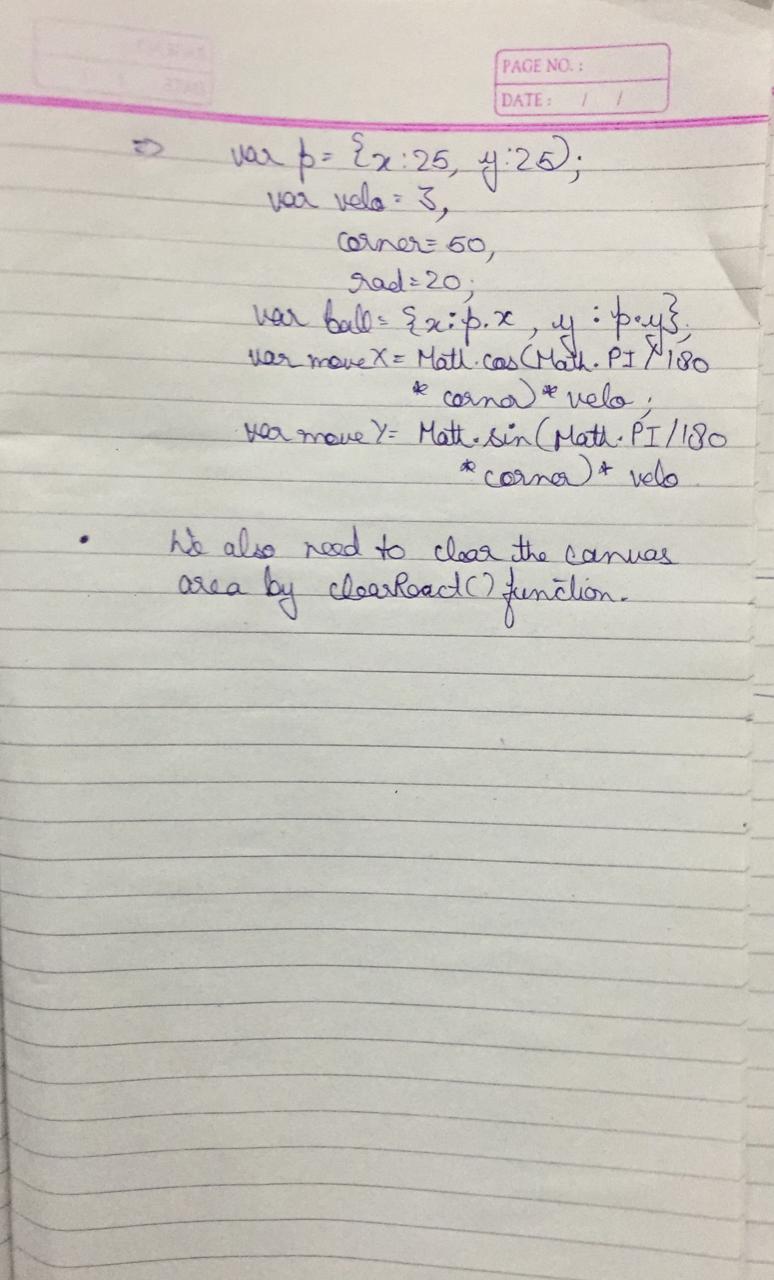 PAGE NO. :
DATE : / /
⇒ var p = {x:25, y:25);
var velo = 3,
corner = 50,
rad = 20;
var ball = {x: p.x, y: p.y};
var moveX = Math.cos(Math.PI/180
* corner) * velo;
var moveY = Math.sin(Math.PI/180
* corner) * velo
• We also need to clear the canvas
area by clearReact() function.